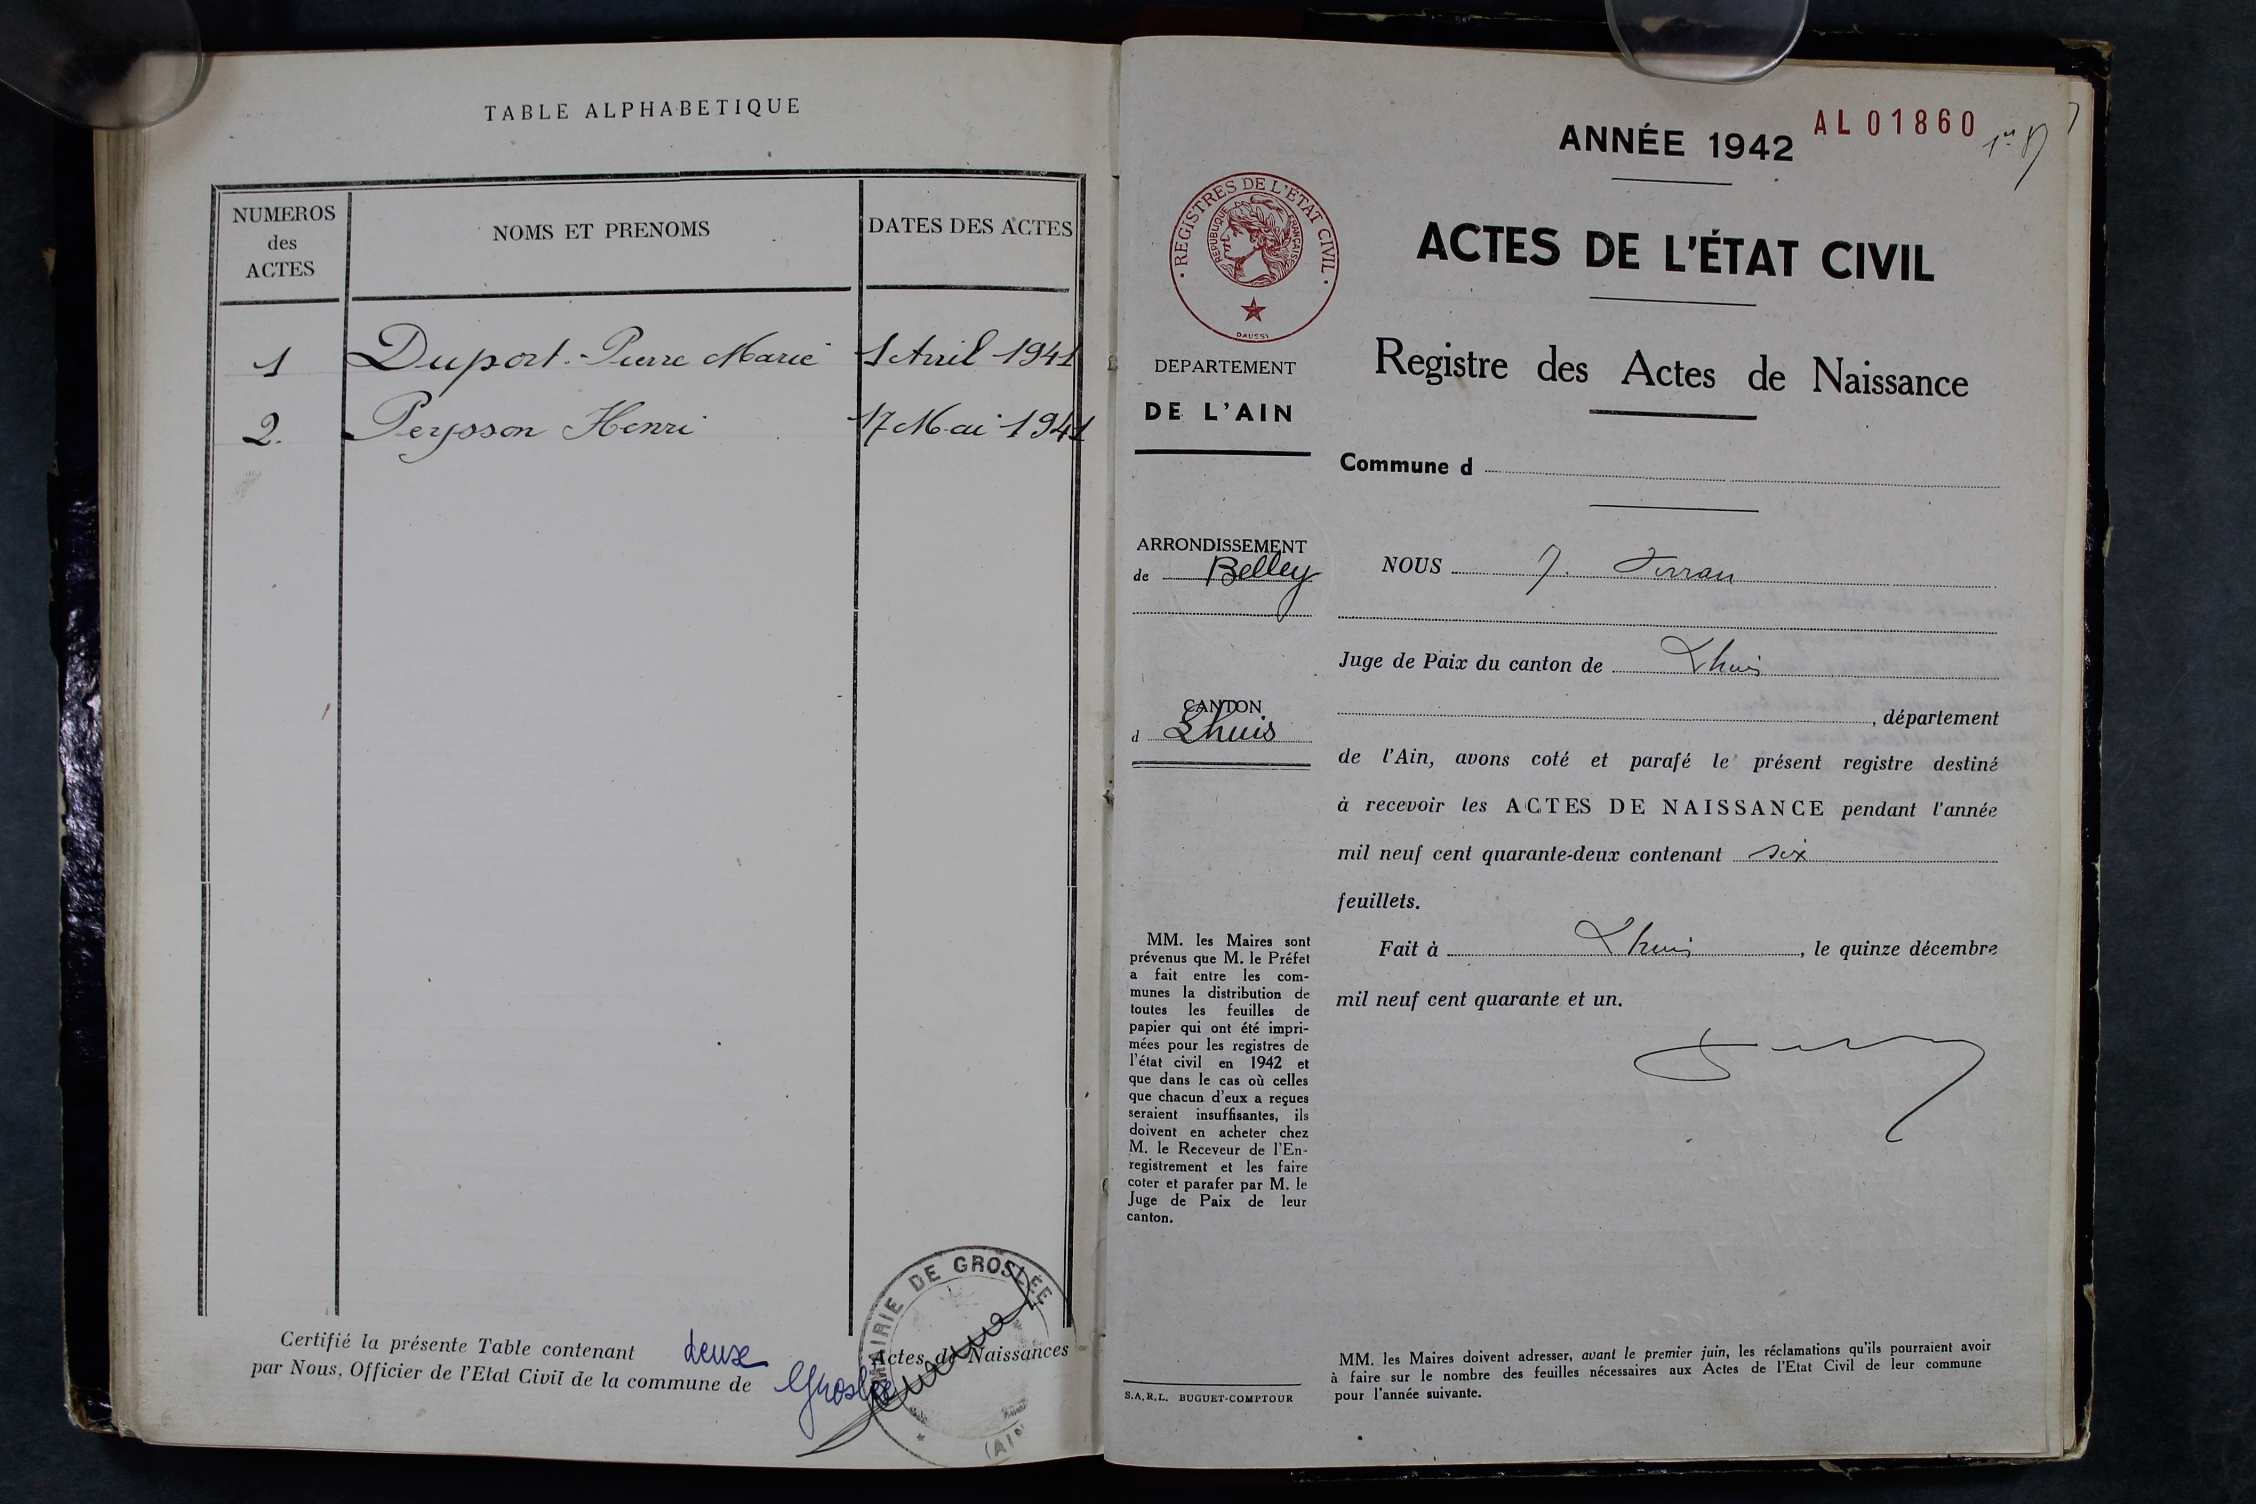 TABLE ALPHABETIQUE
NUMEROS
des
ACTES
NOMS ET PRENOMS
DATES DES ACTES
1 Duport. Pierre Marie 1 Avril 1941
2. Peysson Henri 17 Mai 1941
Certifié la présente Table contenant deux Actes de Naissances
par Nous, Officier de l'Etat Civil de la commune de Groslée
MAIRIE DE GROSLÉE
(Ain
ANNÉE 1942
AL01860
REGISTRES DE L'ETAT CIVIL
REPUBLIQUE FRANÇAISE
DAUSSY
ACTES DE L'ÉTAT CIVIL
Registre des Actes de Naissance
DEPARTEMENT
DE L'AIN
Commune d
ARRONDISSEMENT
de Belley
NOUS J.
Juge de Paix du canton de Lhuis
CANTON
d Lhuis
, département
de l'Ain, avons coté et parafé le présent registre destiné
à recevoir les ACTES DE NAISSANCE pendant l'année
mil neuf cent quarante-deux contenant six
feuillets.
Fait à Lhuis, le quinze décembre
mil neuf cent quarante et un.
MM. les Maires sont
prévenus que M. le Préfet
a fait entre les com-
munes la distribution de
toutes les feuilles de
papier qui ont été impri-
mées pour les registres de
l'état civil en 1942 et
que dans le cas où celles
que chacun d'eux a reçues
seraient insuffisantes, ils
doivent en acheter chez
M. le Receveur de l'En-
registrement et les faire
coter et parafer par M. le
Juge de Paix de leur
canton.
S.A.R.L. BUGUET-COMPTOUR
MM. les Maires doivent adresser, avant le premier juin, les réclamations qu'ils pourraient avoir
à faire sur le nombre des feuilles nécessaires aux Actes de l'Etat Civil de leur commune
pour l'année suivante.